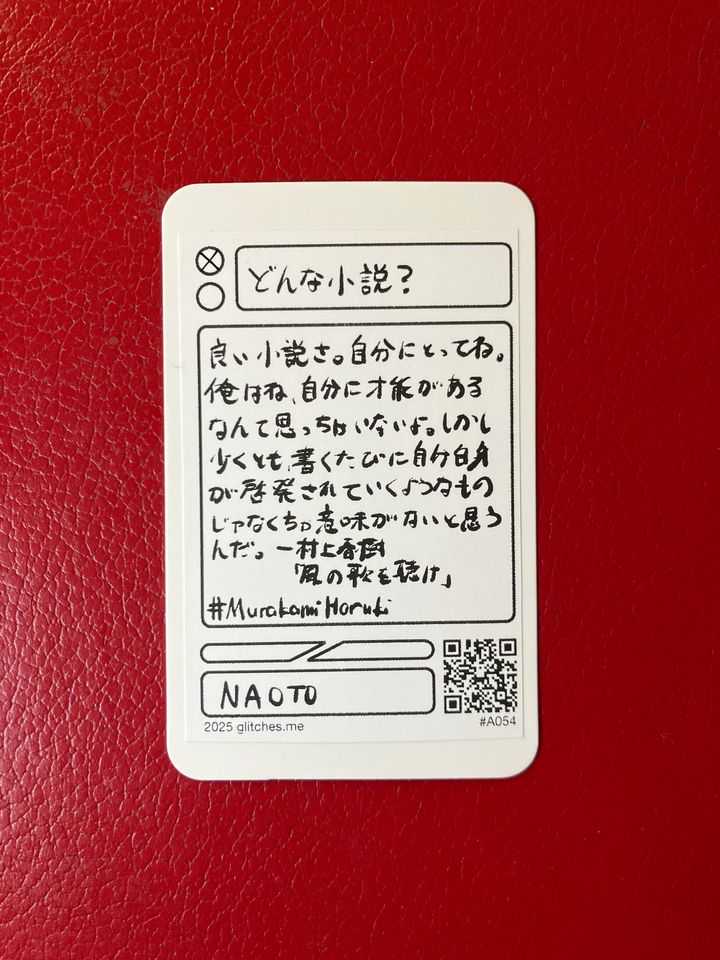 どんな小説？
良い小説さ。自分にとってね。
俺はね、自分に才能がある
なんて思っちゃいないよ。しかし
少くとも、書くたびに自分自身
が啓発されていくようなもの
じゃなくちゃ意味がないと思う
んだ。—村上春樹
「風の歌を聴け」
#MurakamiHaruki
NAOTO
2025 glitches.me
#A054